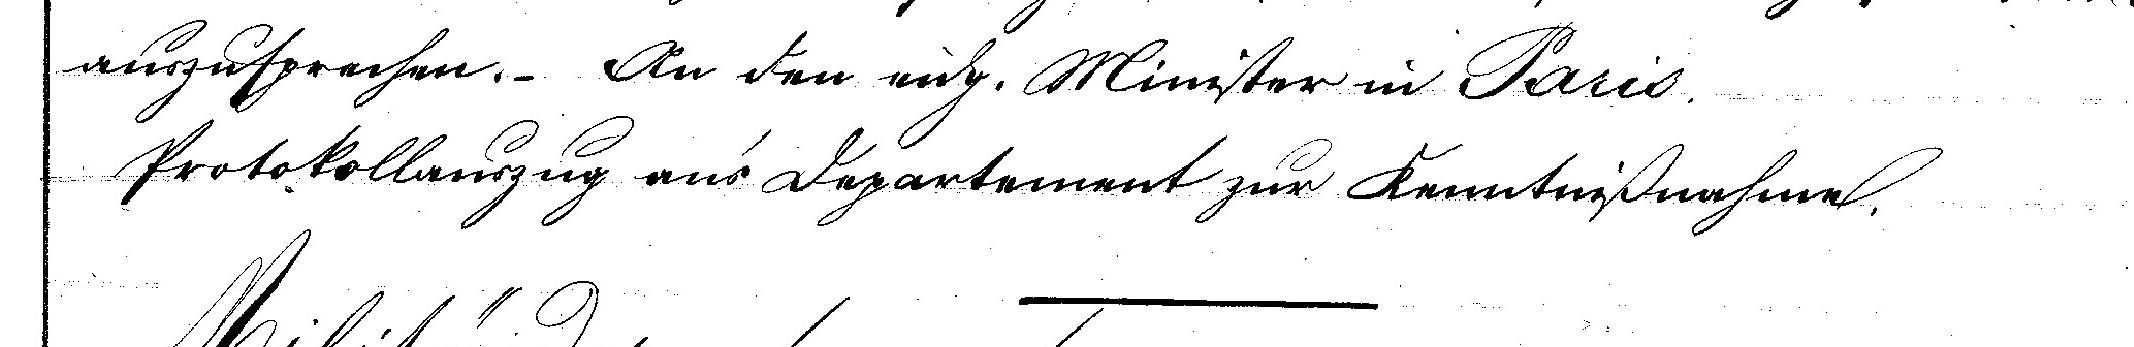 auszusprechen.- An den eidg. Minister in Paris.
Protokollauszug an's Departement zur Kenntnißnahme.